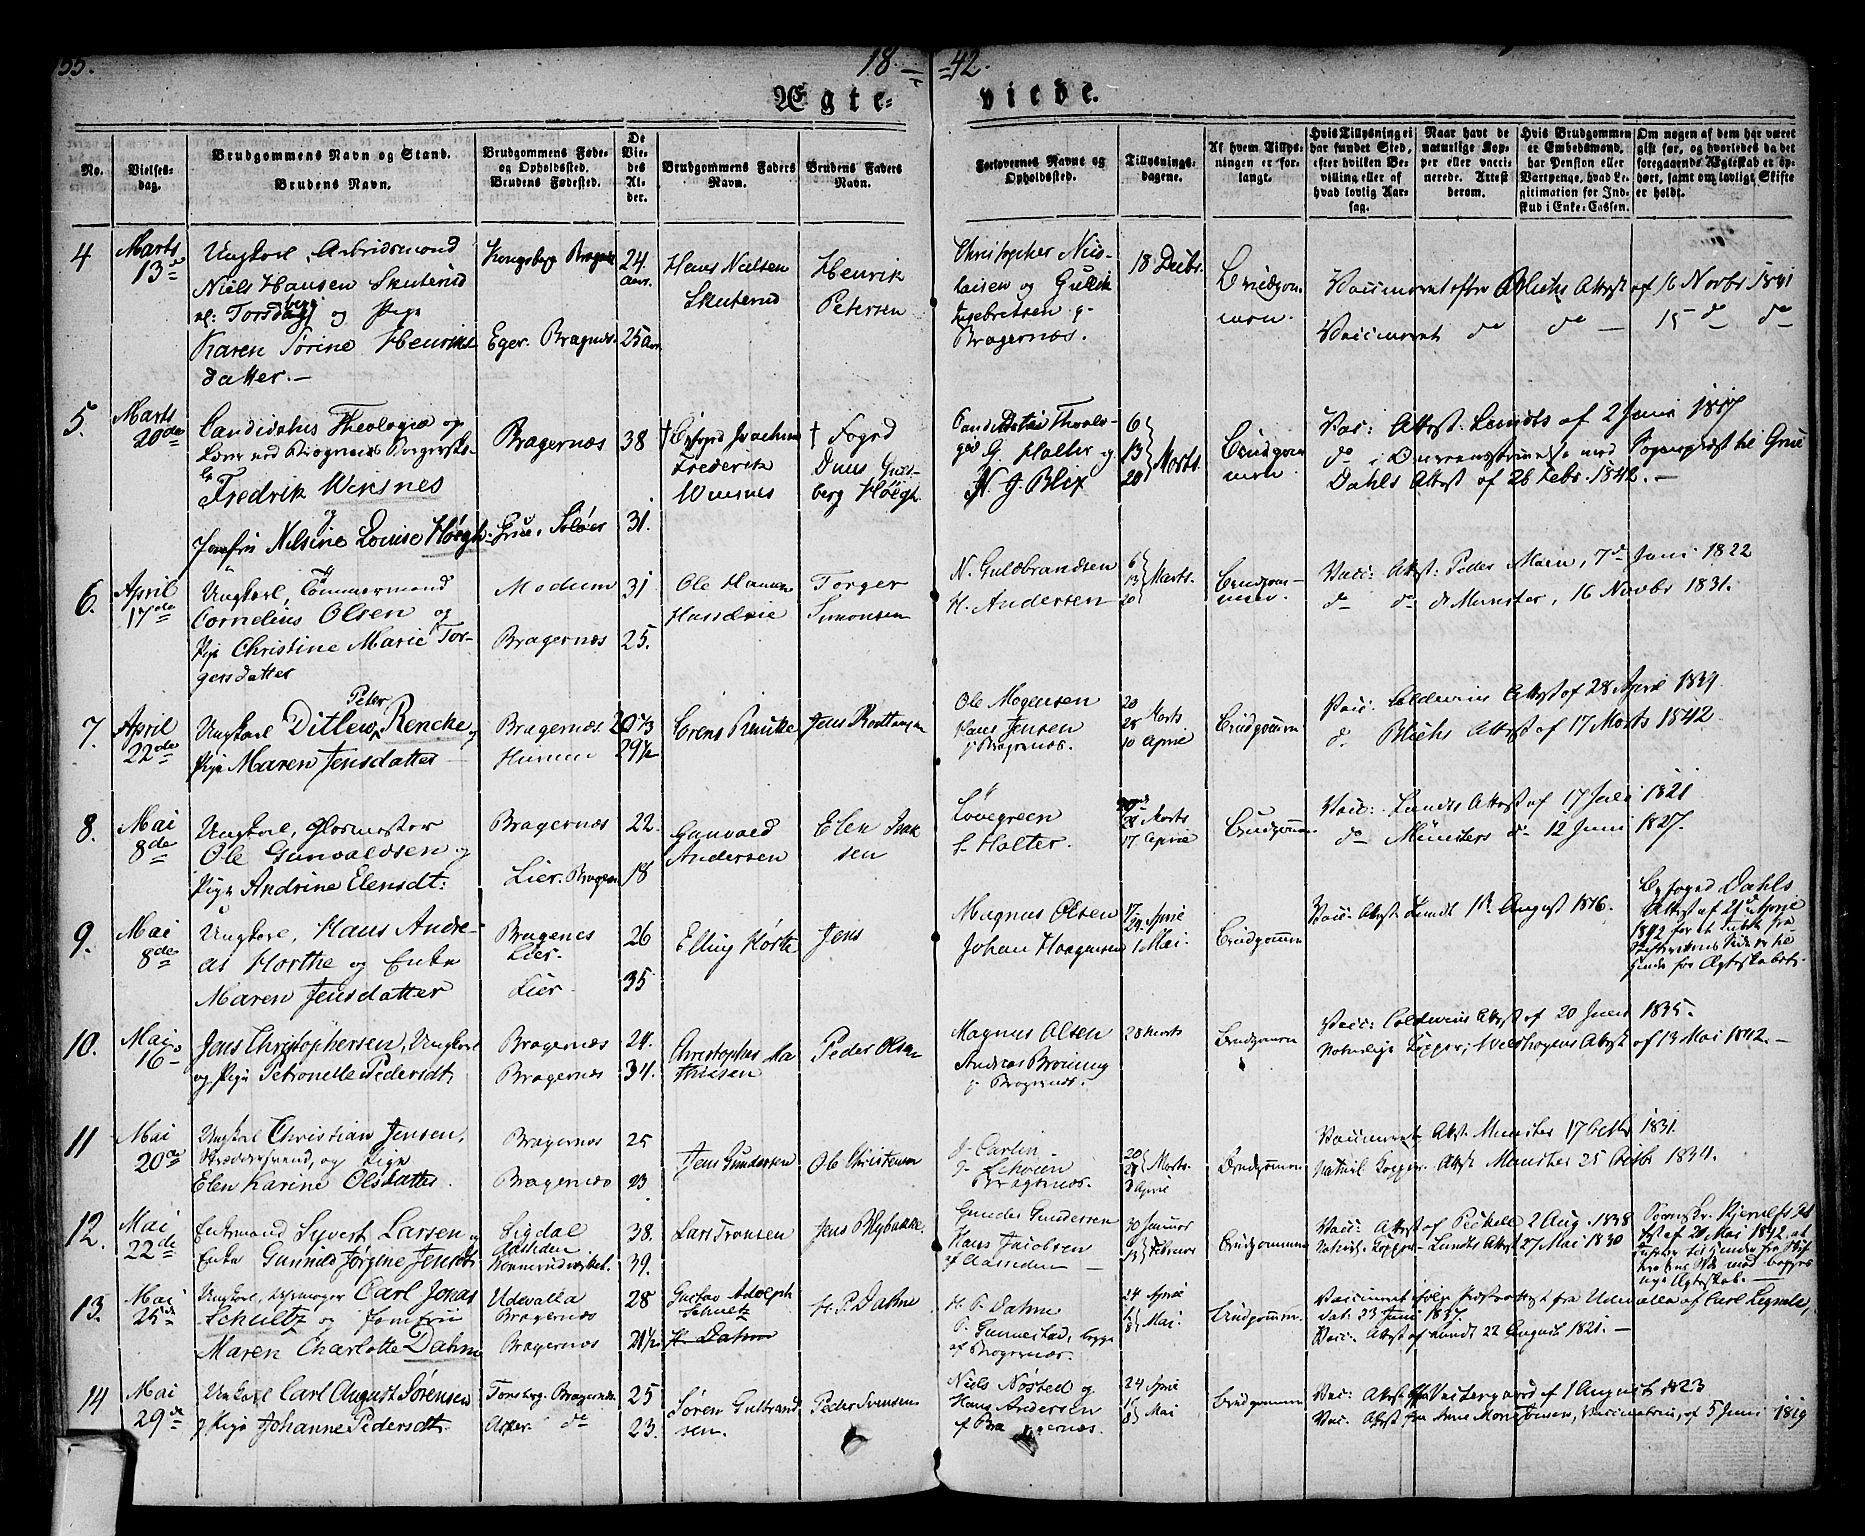 155.
18
42.
Ægte-
viede.
No.
Vielses-
dag.
Brudgommens Navn og Stand.
Brudens Navn.
Brudgommens Føde-
og Opholdssted.
Brudens Fødested.
De
Vie-
des
Al-
der.
Brudgommens Faders
Navn.
Brudens Faders
Navn.
Forlovernes Navne og
Opholdssted.
Tillysnings-
dagene.
Af hvem Tillys-
ningen er for-
langt.
Hvis Tillysning ei
har fundet Sted,
efter hvilken Be-
villing eller af
hvad lovlig Aar-
sag.
Naar havt de
naturlige Kop-
per eller vacci-
nerede. Attest
derom.
Hvis Brudgommen
er Embedsmand,
har Pension eller
Vartpenge, hvad Le-
gitimation for Ind-
skud i Enke-Cassen.
Om nogen af dem har været
gift før, og hvorledes da det
foregaaende Ægteskab er op-
hørt, samt om lovligt Skifte
er holdt.
4
Marts
13de
Ungkarl, Arbeidsmand
Niels Hansen Skuterud
og Pige
Karen Sørine Henriks-
datter.
Kongsberg Bragnæs
Eger. Bragnæs.
24
aar.
25 aar
Hans Nielsen
Skuterud
Henrik
Petersen
Christopher Niis-
laisen og Gulik
Ingebretsen
Bragernæs.
18 Decbr.
Brudgom-
men.
Vaccineret efter Blichs Attest af 16 Novbr 1841
Vaccineret do do 15 do do
5.
Marts
20de
Candidatus Theologiæ og
Lærer ved Bragernæs Borgersko-
le
Fredrik Wiesnes
og
Jomfru Nilsine Louise Høegh
Bragernæs
Grue, Solöer
38
31.
Joachim
Frederik
Wiesnes
† Fogd
Høegh
G. Halter og
N. J. Blix
6
13
20
Marts.
Brudgom
men.
Vac: Attest. Lundts af 2 Juni 1817
Sogneprest til Grue
Dahls Attest af 26 Febr. 1842.
6.
April
17de
Ungkarl, Tömmermand
Cornelius Olsen og
Pige Christine Marie Tor-
gersdatter
Modum
Bragernæs
31
25.
Ole Hansen
Torger
Simonsen
N. Guldbrandsen
H. Andersen
6
13
20
Marts.
Brudgom-
men.
Vacc: Attest: Peder Moen, 7de Juni 1822
do do Munster, 16 Novbr 1831.
7.
April
22de
Peter
Ungkarl Ditlew Rencke og
Pige Maren Jensdatter
Bragernæs.
Hurum
29 1/2
Jens
Ole Mogensen
Hans Jensen
Bragernæs.
20
28 Marts
10 April
Brudgommen
Vacc: Coldevins Attest af 28 April 1839
do Blichs Attest af 17 Marts 1842.
8.
Mai
8de
Ungkarl, Glasmester
Ole Gunvaldsen og
Pige Andrine Elensdt:
Bragernæs
Lier. Bragernæs
22.
18
Gunvald
Andersen
Elen Isak
sen
Lövegreen
Halter.
28 Marts
17 April
Brudgommen
Vacc: Lundts Attest af 17 Juli 1821
do Münsters do 12 Juni 1827.
9.
Mai
8de
Ungkarl, Hans Andre-
as Horthe og Enke
Maren Jensdatter
Bragernes
Lier.
Lier
26
35
Elling Horte
Jens
Magnus Olsen
Johan Haagensen
17
24 April
1 Mai.
Brudgommen
Vacc: Attest. Lundt August 1816.
Byfoged Dahls
Attest af 21de April
1842 for at Intet fra
Skifterettens Side er til
hinder for Ægteskabet.
10.
Mai
16
Jens Christophersen, Ungkarl
og Pige Petronelle Pedersdt.
Bragernæs
Bragernæs
24.
34.
Christopher Ma
thiesen
Peder Olsen
Magnus Olsen
Andreas Broming
Bragernæs.
28 Marts
Brudgommen
Vacc: Coldevins Attest af 20 Juni 1835.
Naturlige Kopper; Welhavens Attest af 13 Mai 1842.
11
Mai
20de
Ungkarl Christian Jensen,
Skræddersvend, og Pige
Elen Karine Olsdatter.
Bragernæs
Bragernæs
25
23
Jens Gundersen
Ole Christensen
J. Carlin
J. Schöien
Bragernæs.
20
28
3 April
Marts.
Brudgommen
Vaccineret Attest Munster 17 Octbr 1831.
Naturl. Kopper. Attest Munster 25 Octbr 1834.
12.
Mai
22de
Enkemand Syvert Larsen og
Enke Gunnild Jörgine Jensdt.
Sigdal
Aasiden
38.
39.
Lars Tronsen
Jens
Gunder Gundersen
Hans Jacobsen
af Aasiden
30 Januar
13 Februar
Brudgommen
Vacc: Attest af 2 Aug. 1838
Naturl. Kopper Lundts Attest 27 Mai 1830
af 20 Mai 1842, at
Intet er til hinder fra Skif-
terettens Side mod begges
nye Ægteskab.
13.
Mai
25de
Ungkarl, Carl Jonas
Schultz og Jomfru
Maren Charlotte Dahm
Udevalla
Bragernæs
Bragernæs
28
21 1/2
Gustav Adolph
Schultz
H. Dahm
H. P. Dahm
H. P. Dahm
P. Gunnestad, begge
af Bragernæs.
24 April
1
8 Mai.
Brudgommen.
Vaccineret ifølge Præsteattest fra Udevalla af Carl Legnale,
dat. 23 Juni 1837.
Vacc: Attest af Lundt 22 August 1821.
14
Mai
29de
Ungkarl Carl August Sörensen
og Pige Johanne Pedersdt.
Tonsberg. Bragernæs
Asker. do
25
23.
Sören Gulbrand
sen.
Peder Svensen
Niels Nosted og
Hans Andersen
af Bragernæs.
24 April
1
8 Mai
Brudgommen
Vacc: Attest af Vestergaard af 1 August 1823
Vac. Attest fra Arne Mortensen, Vaccinatør, af 5 Juni 1819